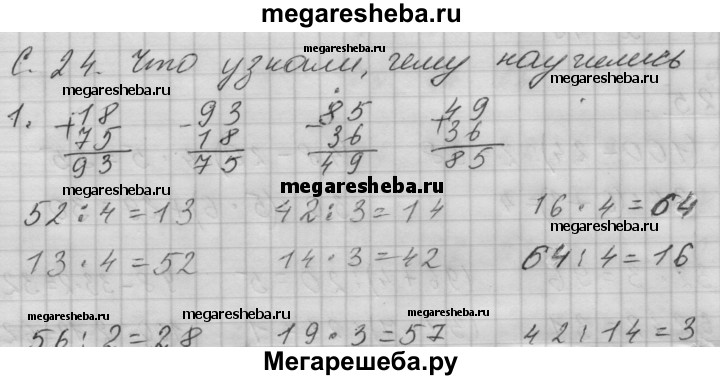 megaresheba.ru
megaresheba.ru
С. 24. Что узнали, чему научились
megaresheba.ru
megaresheba.ru
1. + 18 - 93 - 85 + 49
75 18 36 36
93 75 49 85
megaresheba.ru
megaresheba.ru
52 : 4 = 13 42 : 3 = 14 16 · 4 = 64
megaresheba.ru
13 · 4 = 52 14 · 3 = 42 64 : 4 = 16
megaresheba.ru
megaresheba.ru
megaresheba.ru
56 : 2 = 28 19 · 3 = 57 42 : 14 = 3
Мегарешеба.ру